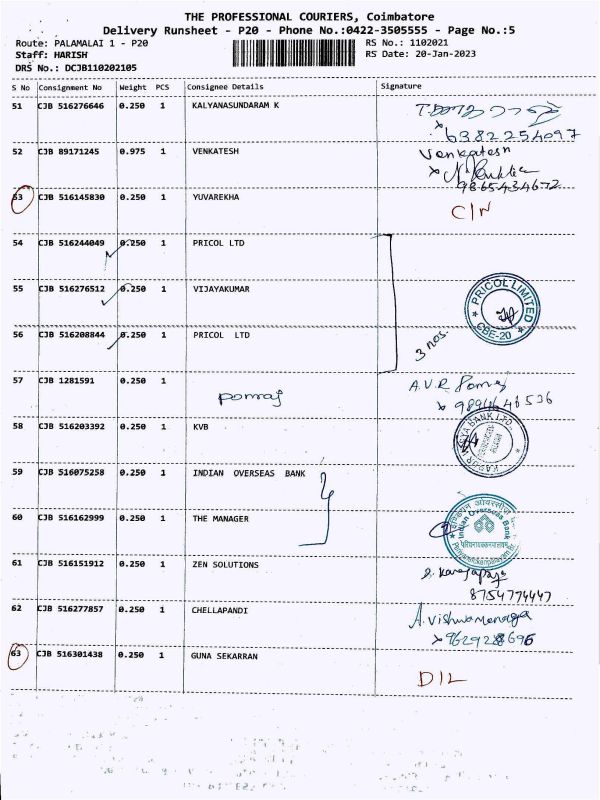 THE PROFESSIONAL COURIERS, Coimbatore
Delivery Runsheet - P20 - Phone No.:0422-3505555 - Page No.:5
Route: PALAMALAI 1 - P20 RS No.: 1102021
Staff: HARISH RS Date: 20-Jan-2023
DRS No.: DCJB110202105
S No Consignment No Weight PCS Consignee Details Signature
51 CJB 516276646 0.250 1 KALYANASUNDARAM K
6382254097
52 CJB 89171245 0.975 1 VENKATESH Venkatesh
9865434672
53 CJB 516145830 0.250 1 YUVAREKHA C/N
54 CJB 516244049 0.250 1 PRICOL LTD
55 CJB 516276512 0.250 1 VIJAYAKUMAR
PRICOL LIMITED
CBE-20
56 CJB 516208844 0.250 1 PRICOL LTD 3 nos.
57 CJB 1281591 0.250 1 ponraj A.V.R Ponraj
58 CJB 516203392 0.250 1 KVB
59 CJB 516075258 0.250 1 INDIAN OVERSEAS BANK
60 CJB 516162999 0.250 1 THE MANAGER
Indian Overseas Bank
61 CJB 516151912 0.250 1 ZEN SOLUTIONS
8754774447
62 CJB 516277857 0.250 1 CHELLAPANDI
9629288696
63 CJB 516301438 0.250 1 GUNA SEKARRAN D/L